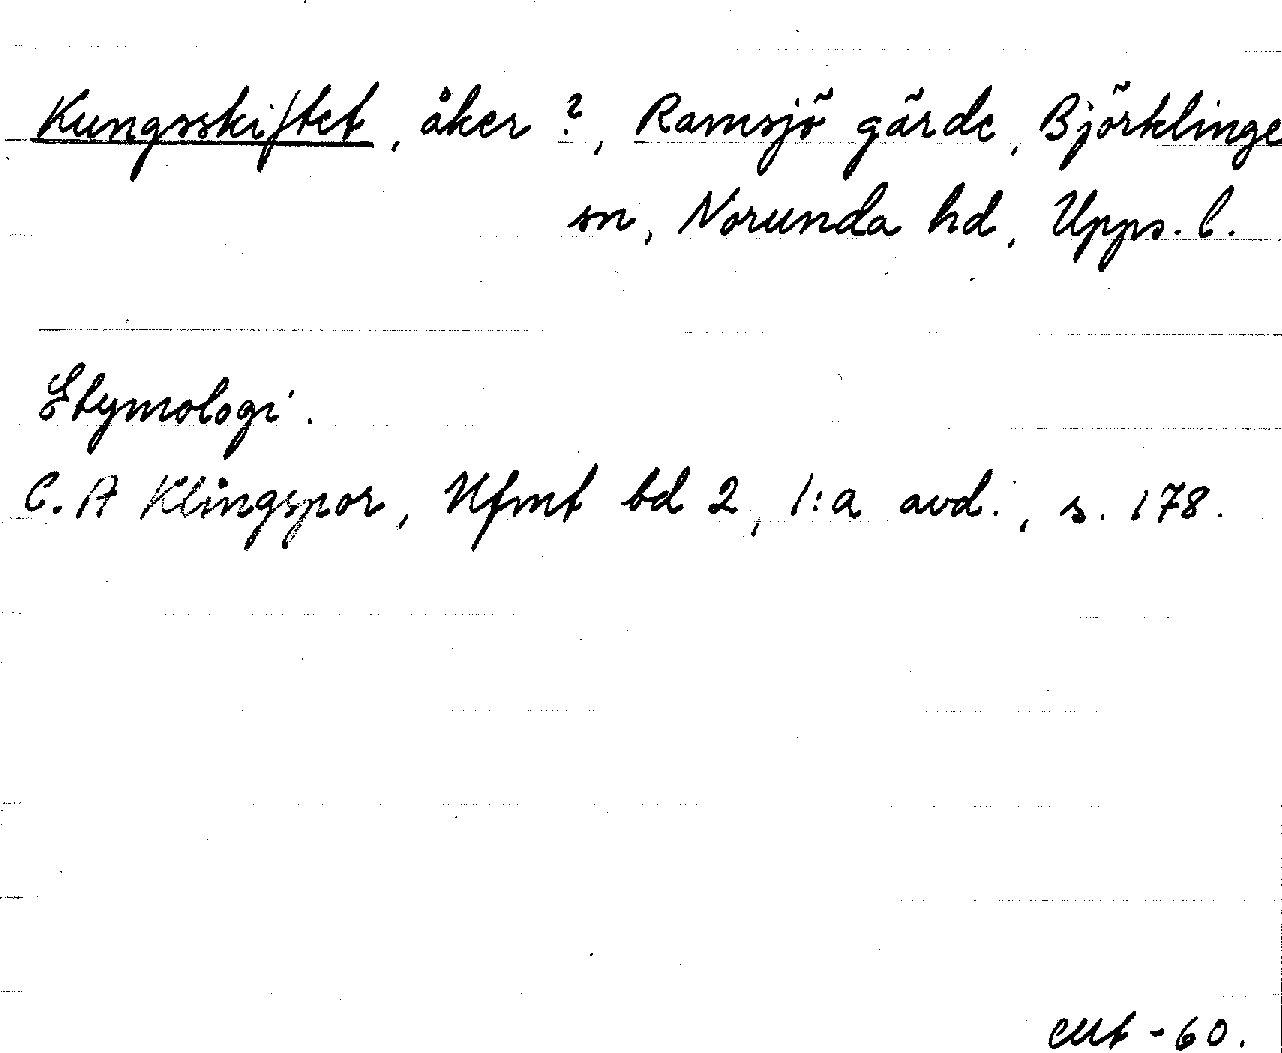 Kungsskiftet, åker ?, Ramsjö gärde, Björklinge
sn, Norunda hd, Upps. l.
Etymologi.
C. A Klingspor, Ufmt bd 2, 1:a avd., s. 178.
-60.